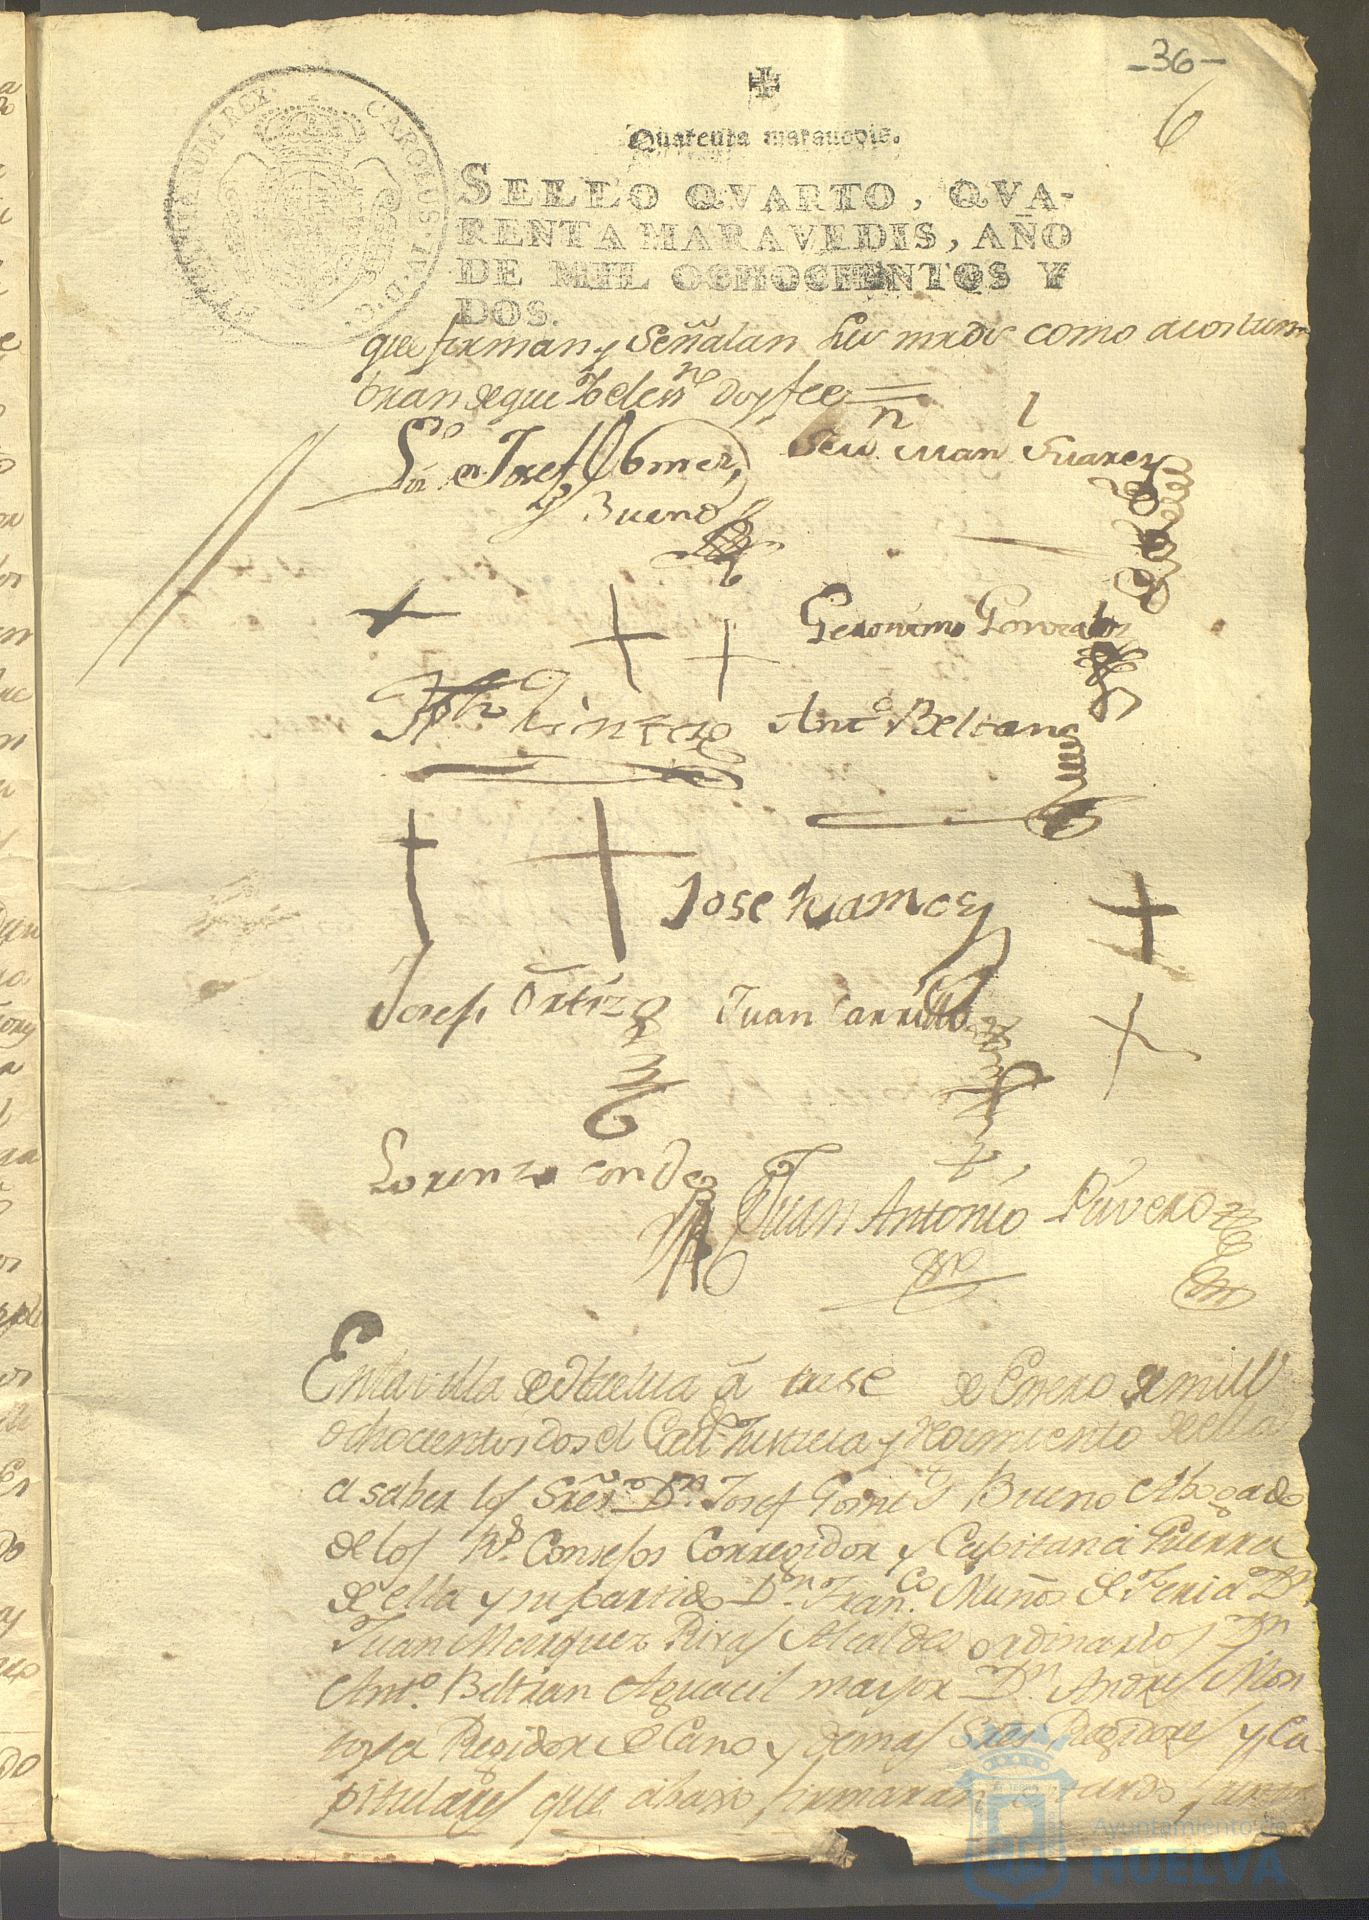 -36-
6
Quarenta maravedis.
SELLO QVARTO, QVA-
RENTA MARAVEDIS, AÑO
DE MIL OCHOCIENTOS Y
DOS.
CAROLUS IV D G
HISPANIARUM REX
que firman y señalan sus mrds como acostum
bran de que yo el essno Doy fee =
Lizdo Dn Josef Gomez
y Bueno
Juan Suarez
Geronimo Gonzales
Quintero Anto Beltran
Jose Ramos
Josef Ortiz Juan Carrillo
Lorenzo conde
Juan Antonio Rivero
En la villa de Huelva á trese de Enero de mill
ochocientos dos el Cavdo Justicia y Regimiento de ella
a saber los Sres Dn Josef Gomez Bueno Abogado
de los Rs Consejos Corregidor y Capitan á Guerra
de ella y su partido Dn Franco Muños de Feria Dn
Juan Marquez Rivas Alcaldes ordinarios Dn
Anto Beltran Aguacil mayor Dn Andres Mon
toya Regidor Decano y demas Sres Regidores y Ca
pitulares que abaxo firmaran
Ayuntamiento de
HUELVA